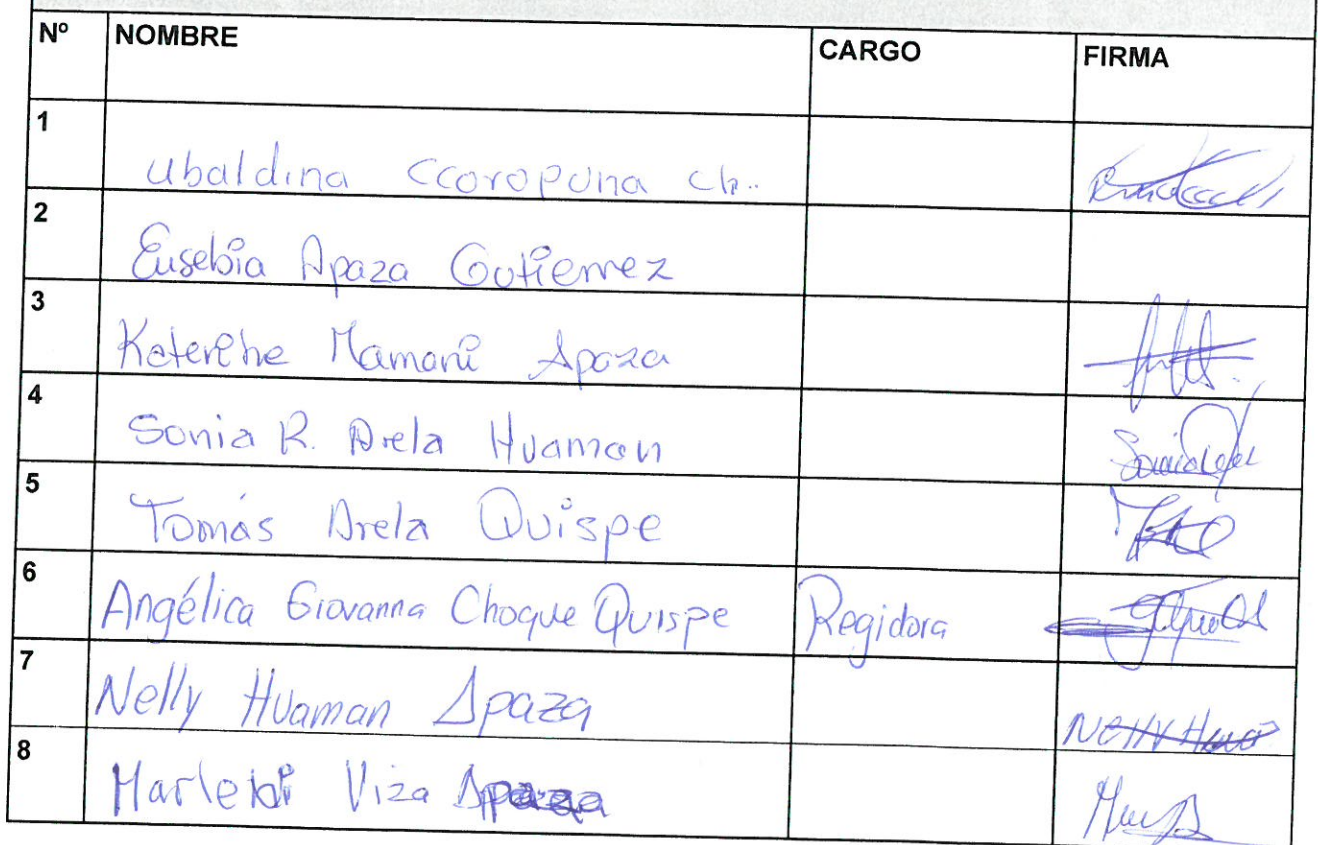 Nº NOMBRE CARGO FIRMA
1 Ubaldina Ccoropuna Ch..
2 Eusebia Apaza Gutierrez
3 Katerihe Mamani Apaza
4 Sonia R. Arela Huaman
5 Tomás Arela Quispe
6 Angélica Giovanna Choque Quispe Regidora
7 Nelly Huaman Apaza
8 Viza Apaza